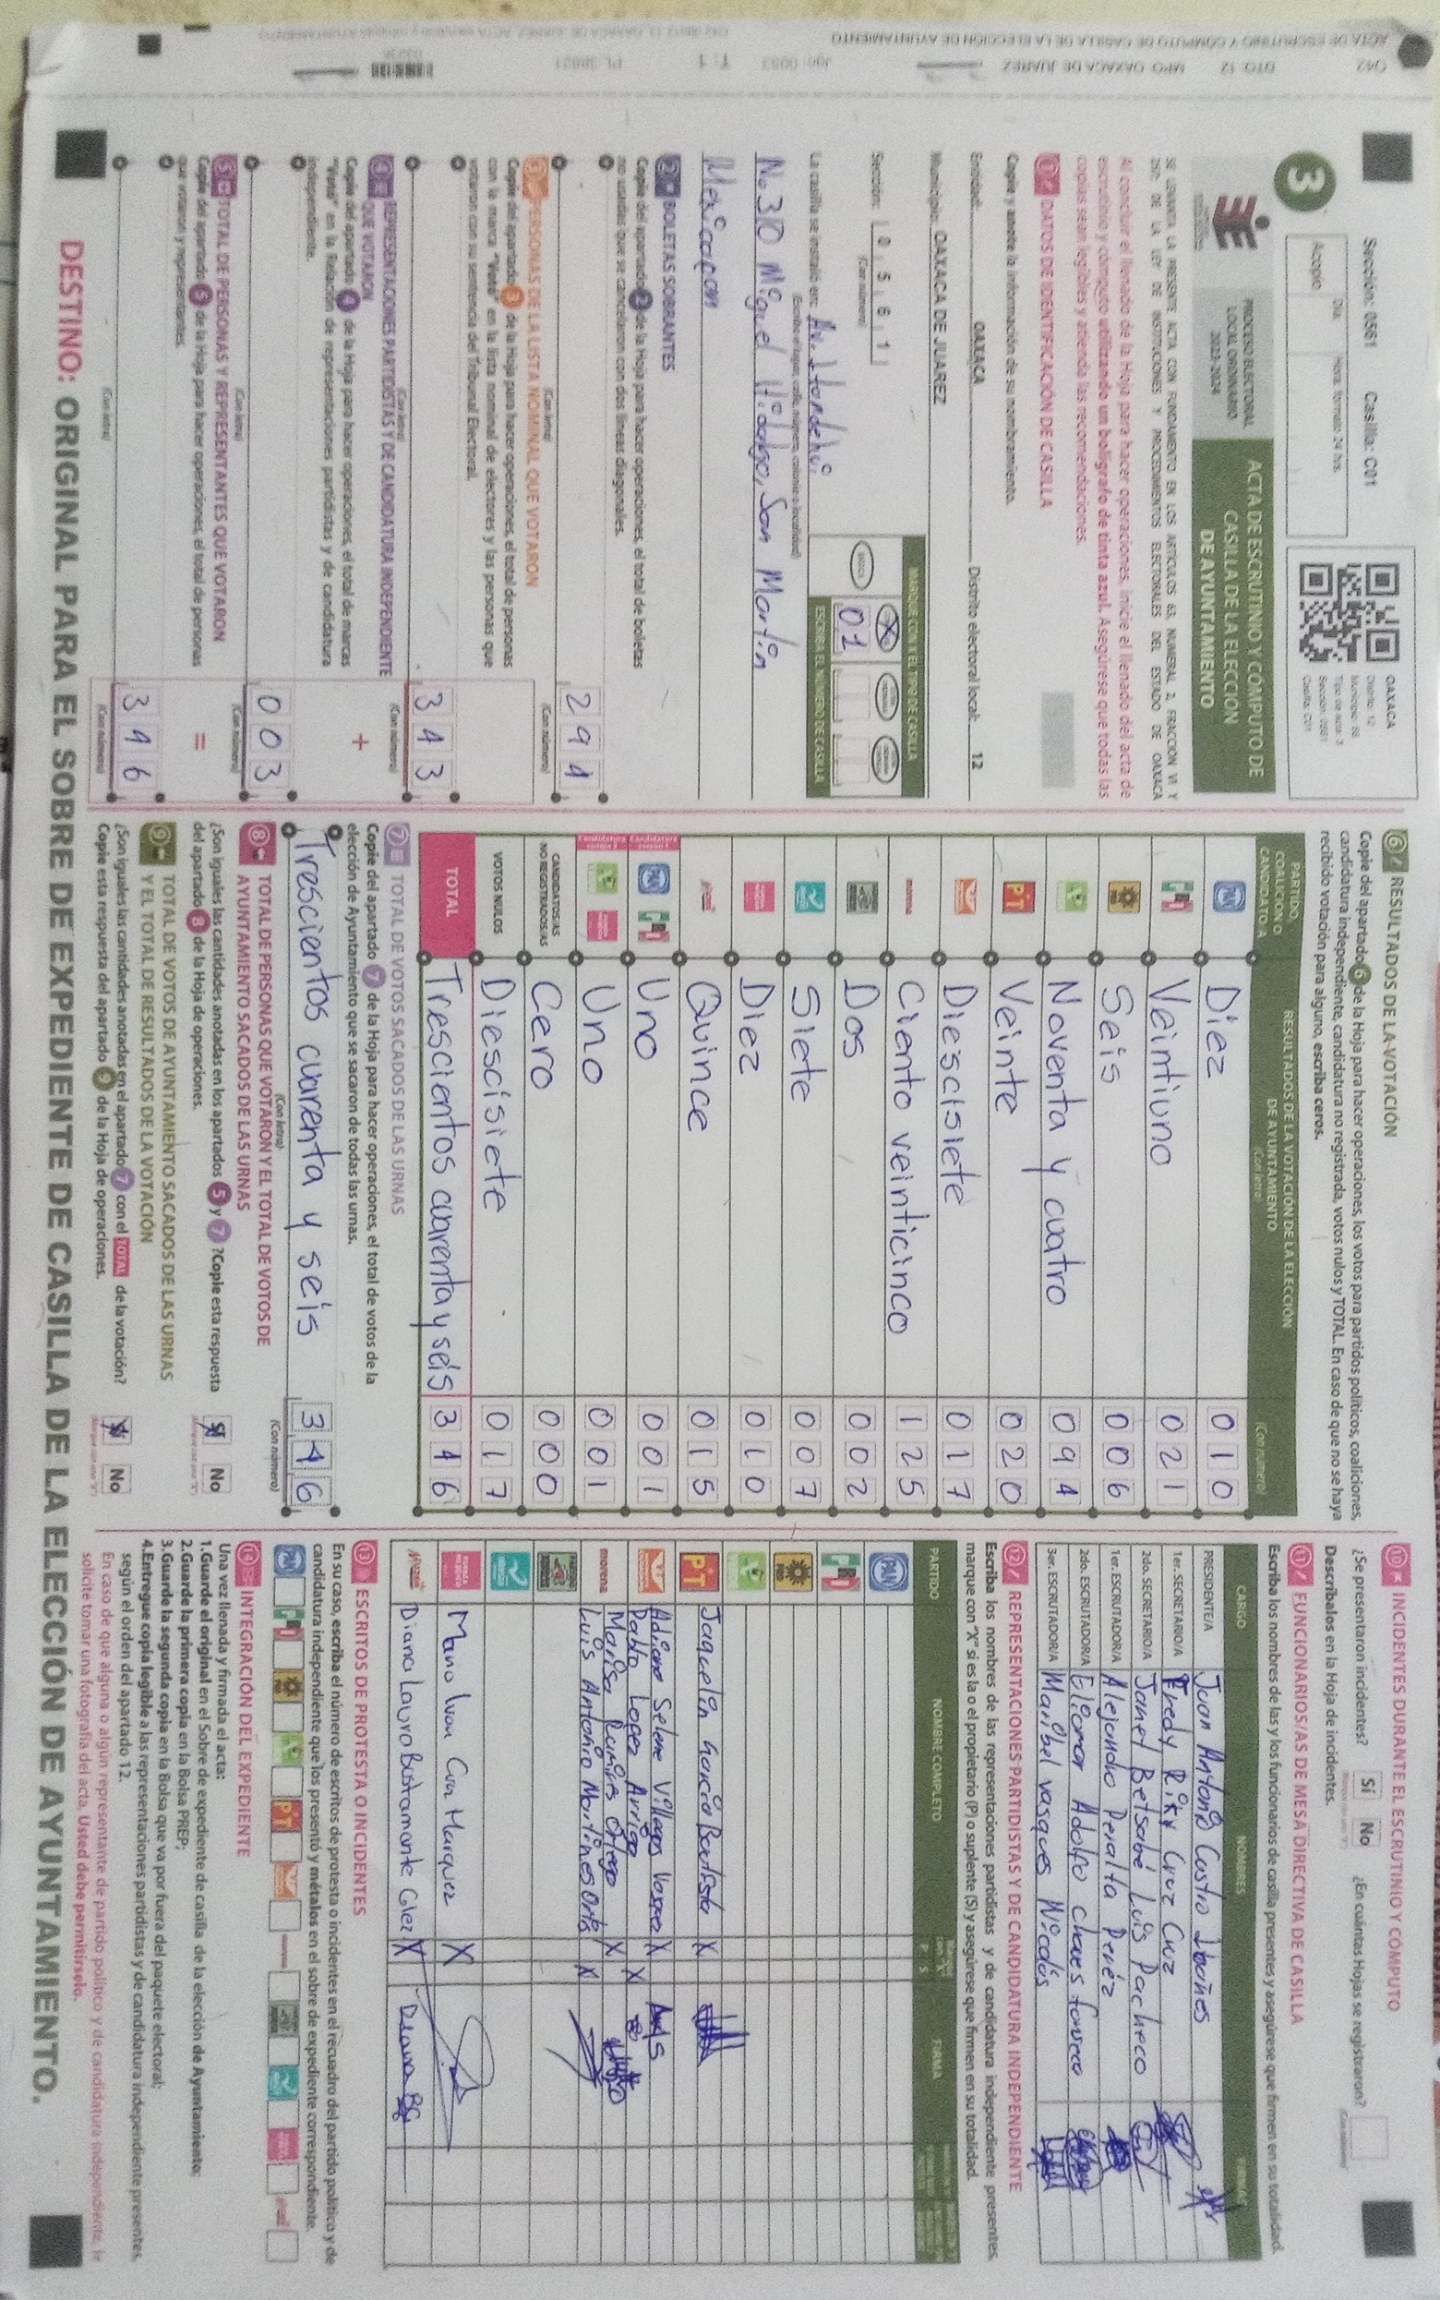 Sección: 0561 Casilla: C01
3
Día: Hora: formato 24 hrs.
Acopio:
OAXACA
Distrito: 12
Tipo de acta: 3
Sección: 0561
Casilla: C01
PROCESO ELECTORAL
LOCAL ORDINARIO
2023-2024
ACTA DE ESCRUTINIO Y CÓMPUTO DE
CASILLA DE LA ELECCIÓN
DE AYUNTAMIENTO
SE LEVANTA LA PRESENTE ACTA CON FUNDAMENTO EN LOS ARTÍCULOS 63, NUMERAL 2, FRACCIÓN VI Y
DE LA LEY DE INSTITUCIONES Y PROCEDIMIENTOS ELECTORALES DEL ESTADO DE OAXACA
Al concluir el llenado de la Hoja para hacer operaciones, inicie el llenado del acta de
escrutinio y cómputo utilizando un bolígrafo de tinta azul. Asegúrese que todas las
copias sean legibles y atienda las recomendaciones.
1 DATOS DE IDENTIFICACIÓN DE CASILLA
Copie y anote la información de su nombramiento.
Entidad: OAXACA Distrito electoral local: 12
Municipio: OAXACA DE JUAREZ
Sección: 0 5 6 1
(Con número)
MARQUE CON X EL TIPO DE CASILLA
X
ESCRIBA EL NÚMERO DE CASILLA
01
La casilla se instaló en:
(Escriba el lugar, calle, número, colonia o localidad)
No 310 Miguel Hidalgo, San Martin
Mexicapan
2 BOLETAS SOBRANTES
Copie del apartado 2 de la Hoja para hacer operaciones, el total de boletas
no usadas que se cancelaron con dos líneas diagonales.
294
(Con letra) (Con número)
3 PERSONAS DE LA LISTA NOMINAL QUE VOTARON
Copie del apartado 3 de la Hoja para hacer operaciones, el total de personas
con la marca "Votó" en la lista nominal de electores y las personas que
votaron con su sentencia del Tribunal Electoral.
343
(Con letra) (Con número)
4 REPRESENTACIONES PARTIDISTAS Y DE CANDIDATURA INDEPENDIENTE
QUE VOTARON
Copie del apartado 4 de la Hoja para hacer operaciones, el total de marcas
"Votó" en la Relación de representaciones partidistas y de candidatura
independiente.
+
003
(Con letra) (Con número)
5 TOTAL DE PERSONAS Y REPRESENTANTES QUE VOTARON
Copie del apartado 5 de la Hoja para hacer operaciones, el total de personas
que votaron y representantes.
=
346
(Con letra) (Con número)
6 RESULTADOS DE LA VOTACIÓN
Copie del apartado 6 de la Hoja para hacer operaciones, los votos para partidos políticos, coaliciones,
candidatura independiente, candidatura no registrada, votos nulos y TOTAL. En caso de que no se haya
recibido votación para alguno, escriba ceros.
PARTIDO, COALICIÓN O CANDIDATO/A
RESULTADOS DE LA VOTACIÓN DE LA ELECCIÓN
DE AYUNTAMIENTO
(Con letra) (Con número)
PAN Diez 010
PRI Veintiuno 021
PRD Seis 006
Noventa y cuatro 094
PT Veinte 020
Diescisiete 017
morena Ciento veinticinco 125
Dos 002
Siete 007
Diez 010
Quince 015
PAN PRI Uno 001
Uno 001
CANDIDATOS/AS
NO REGISTRADOS/AS Cero 000
VOTOS NULOS Diescisiete 017
TOTAL Trescientos cuarenta y seis 346
7 TOTAL DE VOTOS SACADOS DE LAS URNAS
Copie del apartado 7 de la Hoja para hacer operaciones, el total de votos de la
elección de Ayuntamiento que se sacaron de todas las urnas.
Trescientos cuarenta y seis 346
(Con letra) (Con número)
8 TOTAL DE PERSONAS QUE VOTARON Y EL TOTAL DE VOTOS DE
AYUNTAMIENTO SACADOS DE LAS URNAS
¿Son iguales las cantidades anotadas en los apartados 5 y 7 ?Copie esta respuesta
del apartado 8 de la Hoja de operaciones.
Sí No
9 TOTAL DE VOTOS DE AYUNTAMIENTO SACADOS DE LAS URNAS
Y EL TOTAL DE RESULTADOS DE LA VOTACIÓN
¿Son iguales las cantidades anotadas en el apartado 7 con el TOTAL de la votación?
Copie esta respuesta del apartado 9 de la Hoja de operaciones.
Sí No
10 INCIDENTES DURANTE EL ESCRUTINIO Y CÓMPUTO
¿Se presentaron incidentes? Sí No ¿En cuántas Hojas se registraron?
Descríbalos en la Hoja de incidentes.
11 FUNCIONARIOS/AS DE MESA DIRECTIVA DE CASILLA
Escriba los nombres de las y los funcionarios de casilla presentes y asegúrese que firmen en su totalidad.
CARGO NOMBRES
PRESIDENTE/A Juan Antonio Castro Ibañes
1er. SECRETARIO/A Fredy Riky Cruz Cruz
2do. SECRETARIO/A Janet Betsabé Luis Pacheco
1er. ESCRUTADOR/A Alejandro Peralta Peréz
2do. ESCRUTADOR/A Eliomar Adolfo Chaves fonseca
3er. ESCRUTADOR/A Maribel vasques Nicolás
12 REPRESENTACIONES PARTIDISTAS Y DE CANDIDATURA INDEPENDIENTE
Escriba los nombres de las representaciones partidistas y de candidatura independiente presentes,
marque con "X" si es la o el propietario (P) o suplente (S) y asegúrese que firmen en su totalidad.
PARTIDO NOMBRE COMPLETO P S FIRMA
PAN
PRI
PRD
PT Jaquelin García Bautista X
Adiana Selene Villagas Vasquez X
Pablo Lopez Arriga X
morena Marisa Ramires Ortega X
Luis Antonio Martines Ortis X
Mario Ivan Cruz Marquez X
Diana Laura Bustamante Glez X Diana BG
13 ESCRITOS DE PROTESTA O INCIDENTES
En su caso, escriba el número de escritos de protesta o incidentes en el recuadro del partido político y de
candidatura independiente que los presentó y métalos en el sobre de expediente correspondiente.
PAN PRI PRD PT morena
14 INTEGRACIÓN DEL EXPEDIENTE
Una vez llenada y firmada el acta:
1.Guarde el original en el Sobre de expediente de casilla de la elección de Ayuntamiento;
2.Guarde la primera copia en la Bolsa PREP;
3.Guarde la segunda copia en la Bolsa que va por fuera del paquete electoral;
4.Entregue copia legible a las representaciones partidistas y de candidatura independiente presentes,
según el orden del apartado 12.
En caso de que alguna o algún representante de partido político y de candidatura independiente, le
solicite tomar una fotografía del acta, Usted debe permitírselo.
DESTINO: ORIGINAL PARA EL SOBRE DE EXPEDIENTE DE CASILLA DE LA ELECCIÓN DE AYUNTAMIENTO.